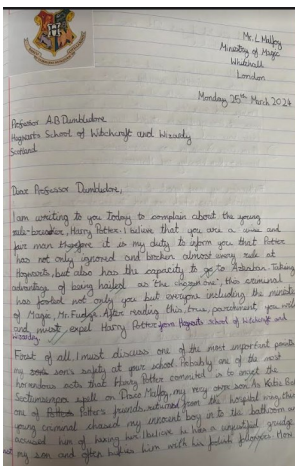 Mr. L Malfoy
Ministry of Magic
Whitehall
London
Monday 25th March 2024
Professor A.B Dumbledore
Hogwarts School of Witchcraft and Wizardy
Scotland
Dear Professor Dumbledore,
I am writing to you today to complain about the young
rule-breaker, Harry Potter. I believe that you are a wise and
fair man therefore it is my duty to inform you that Potter
has not only ignored and broken almost every rule at
Hogwarts, but also has the capacity to go to Azkaban. Taking
advantage of being hailed as 'the chosen one', this criminal
has fooled not only you but everyone including the minister
of Magic, Mr. Fudge. After reading this, true, parchment, you will
and must, expel Harry Potter from Hogwarts School of Witchcraft and
wizardry.
First of all, I must discuss one of the most important points
my son's safety at your school. Probably one of the most
horrendous acts that Harry Potter commited is to cast the
Sectumsempra spell on Draco Malfoy, my very own son. As Katie Bell
one of Potter's friends, returned from the hospital wing, this
young criminal chased my innocent boy in to the bathroom and
accused him of hexing him. I believe he has a grudge
my son and often bullies him with his foolish followers. More